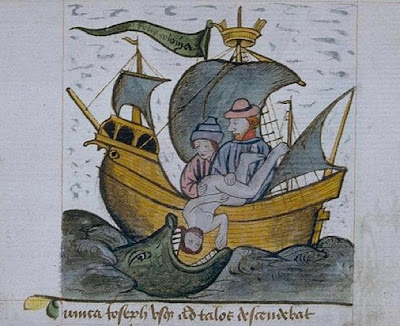 Tunica Joseph vsqꝫ ad talos descendebat